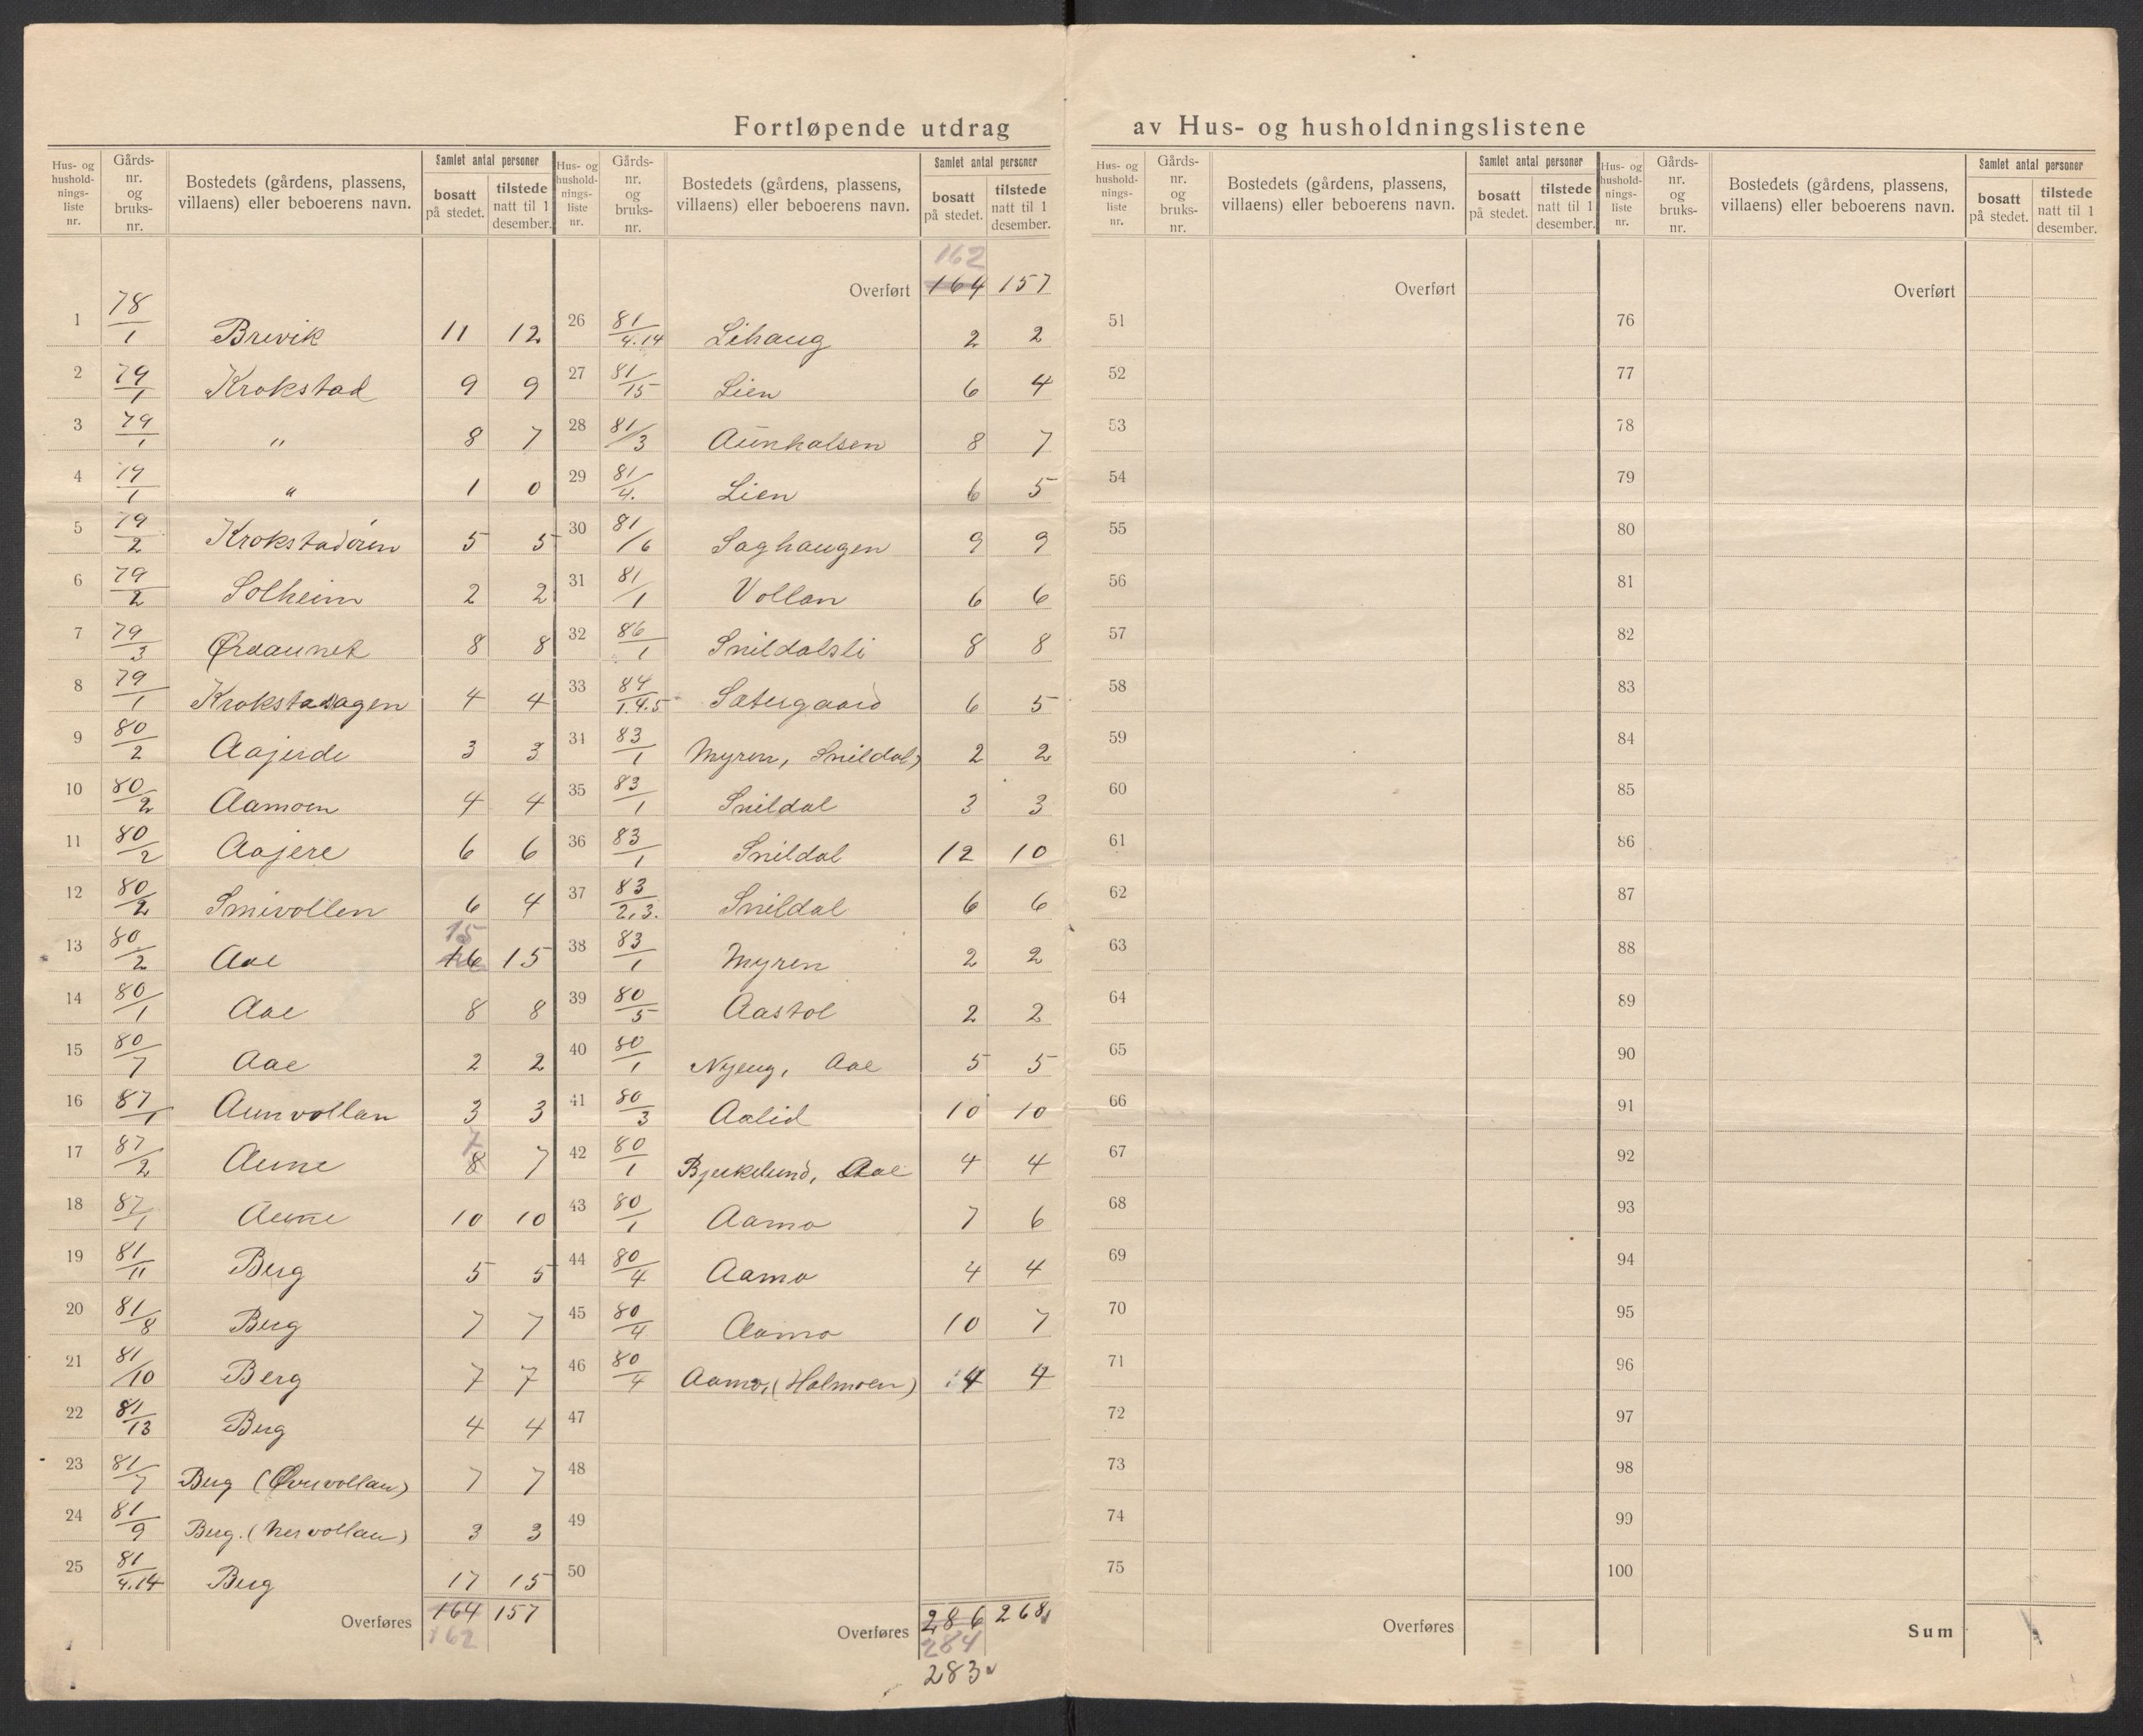 Fortløpende utdrag av Hus- og husholdningslistene
Hus- og husholdningsliste nr. | Gårds-nr. og bruks-nr. | Bostedets (gårdens, plassens, villaens) eller beboerens navn. | Samlet antal personer bosatt på stedet. | tilstede natt til 1 desember.
1 78/1 Brevik 11 12
2 79/1 Krokstad 9 9
3 79/1 " 8 7
4 79/1 " 1 0
5 79/2 Krokstadøren 5 5
6 79/2 Solheim 2 2
7 79/3 Øraaunet 8 8
8 79/1 Krokstadhagen 4 4
9 80/2 Aajerde 3 3
10 80/2 Aamoen 4 4
11 80/2 Aajere 6 6
12 80/2 Smivollen 6 4
13 80/2 Aae 16 15 15
14 80/1 Aae 8 8
15 80/7 Aae 2 2
16 87/1 Aunvollan 3 3
17 87/2 Aune 8 7 7
18 87/1 Aune 10 10
19 81/11 Berg 5 5
20 81/8 Berg 7 7
21 81/10 Berg 7 7
22 81/13 Berg 4 4
23 81/7 Berg (Øvrevollan) 7 7
24 81/9 Berg. (Nervollan) 3 3
25 81/4.14 Berg 17 15
Overføres 164 157
162
Hus- og husholdningsliste nr. | Gårds-nr. og bruks-nr. | Bostedets (gårdens, plassens, villaens) eller beboerens navn. | Samlet antal personer bosatt på stedet. | tilstede natt til 1 desember.
162
Overført 164 157
26 81/4.14 Lihaug 2 2
27 81/15 Lien 6 4
28 81/3 Aunhalsen 8 7
29 81/4. Lien 6 5
30 81/6 Saghaugen 9 9
31 81/1 Vollan 6 6
32 86/1 Snildalsli 8 8
33 84/1.4.5 Sætergaard 6 5
34 83/1 Myren, Snildal, 2 2
35 83/1 Snildal 3 3
36 83/1 Snildal 12 10
37 83/2,3. Snildal 6 6
38 83/1 Myren 2 2
39 80/5 Aastøl 2 2
40 80/1 Nyeng, Aae 5 5
41 80/3 Aalid 10 10
42 80/1 Bjerkelund, Aae 4 4
43 80/1 Aamo 7 6
44 80/4 Aamo 4 4
45 80/4 Aamo 10 7
46 80/4 Aamo, (Holmoen) 4 4
47
48
49
50
Overføres 286 268
284
283
Hus- og husholdningsliste nr. | Gårds-nr. og bruks-nr. | Bostedets (gårdens, plassens, villaens) eller beboerens navn. | Samlet antal personer bosatt på stedet. | tilstede natt til 1 desember.
Overført
51
52
53
54
55
56
57
58
59
60
61
62
63
64
65
66
67
68
69
70
71
72
73
74
75
Overføres
Hus- og husholdningsliste nr. | Gårds-nr. og bruks-nr. | Bostedets (gårdens, plassens, villaens) eller beboerens navn. | Samlet antal personer bosatt på stedet. | tilstede natt til 1 desember.
Overført
76
77
78
79
80
81
82
83
84
85
86
87
88
89
90
91
92
93
94
95
96
97
98
99
100
Sum